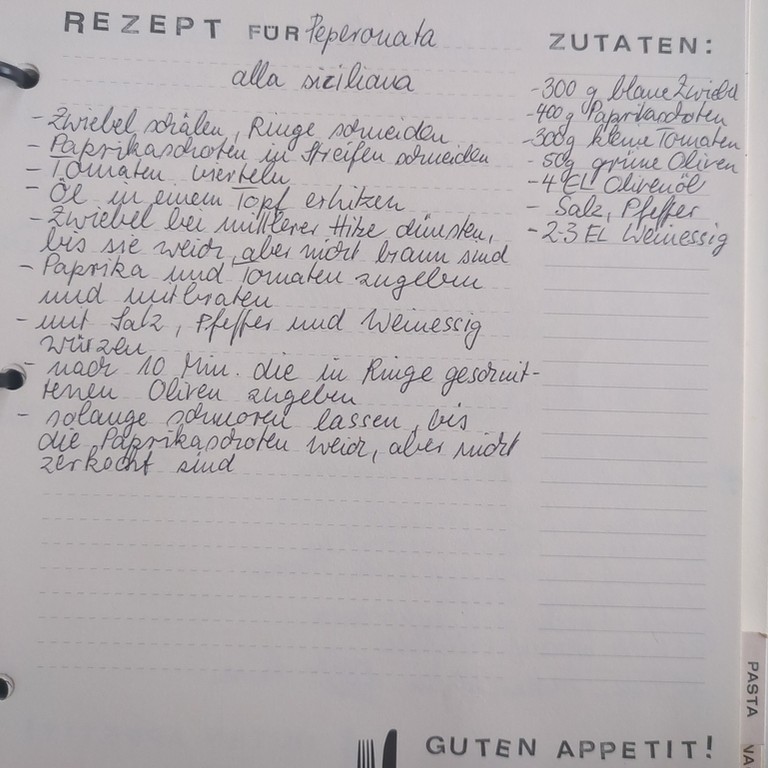 REZEPT FÜR Peperonata
alla siciliana
- Zwiebel schälen, Ringe schneiden
- Paprikaschoten in Streifen schneiden
- Tomaten vierteln
- Öl in einem Topf erhitzen
- Zwiebel bei mittlerer Hitze dünsten,
bis sie weich, aber nicht braun sind
- Paprika und Tomaten zugeben
und mitbraten
- mit Salz, Pfeffer und Weinessig
würzen
- nach 10 Min. die in Ringe geschnit-
tenen Oliven zugeben
- solange schmoren lassen, bis
die Paprikaschoten weich, aber nicht
zerkocht sind
ZUTATEN:
- 300 g blaue Zwiebel
- 400 g Paprikaschoten
- 300g kleine Tomaten
- 50g grüne Oliven
- 4 EL Olivenöl
- Salz, Pfeffer
- 2-3 EL Weinessig
GUTEN APPETIT!
PASTA